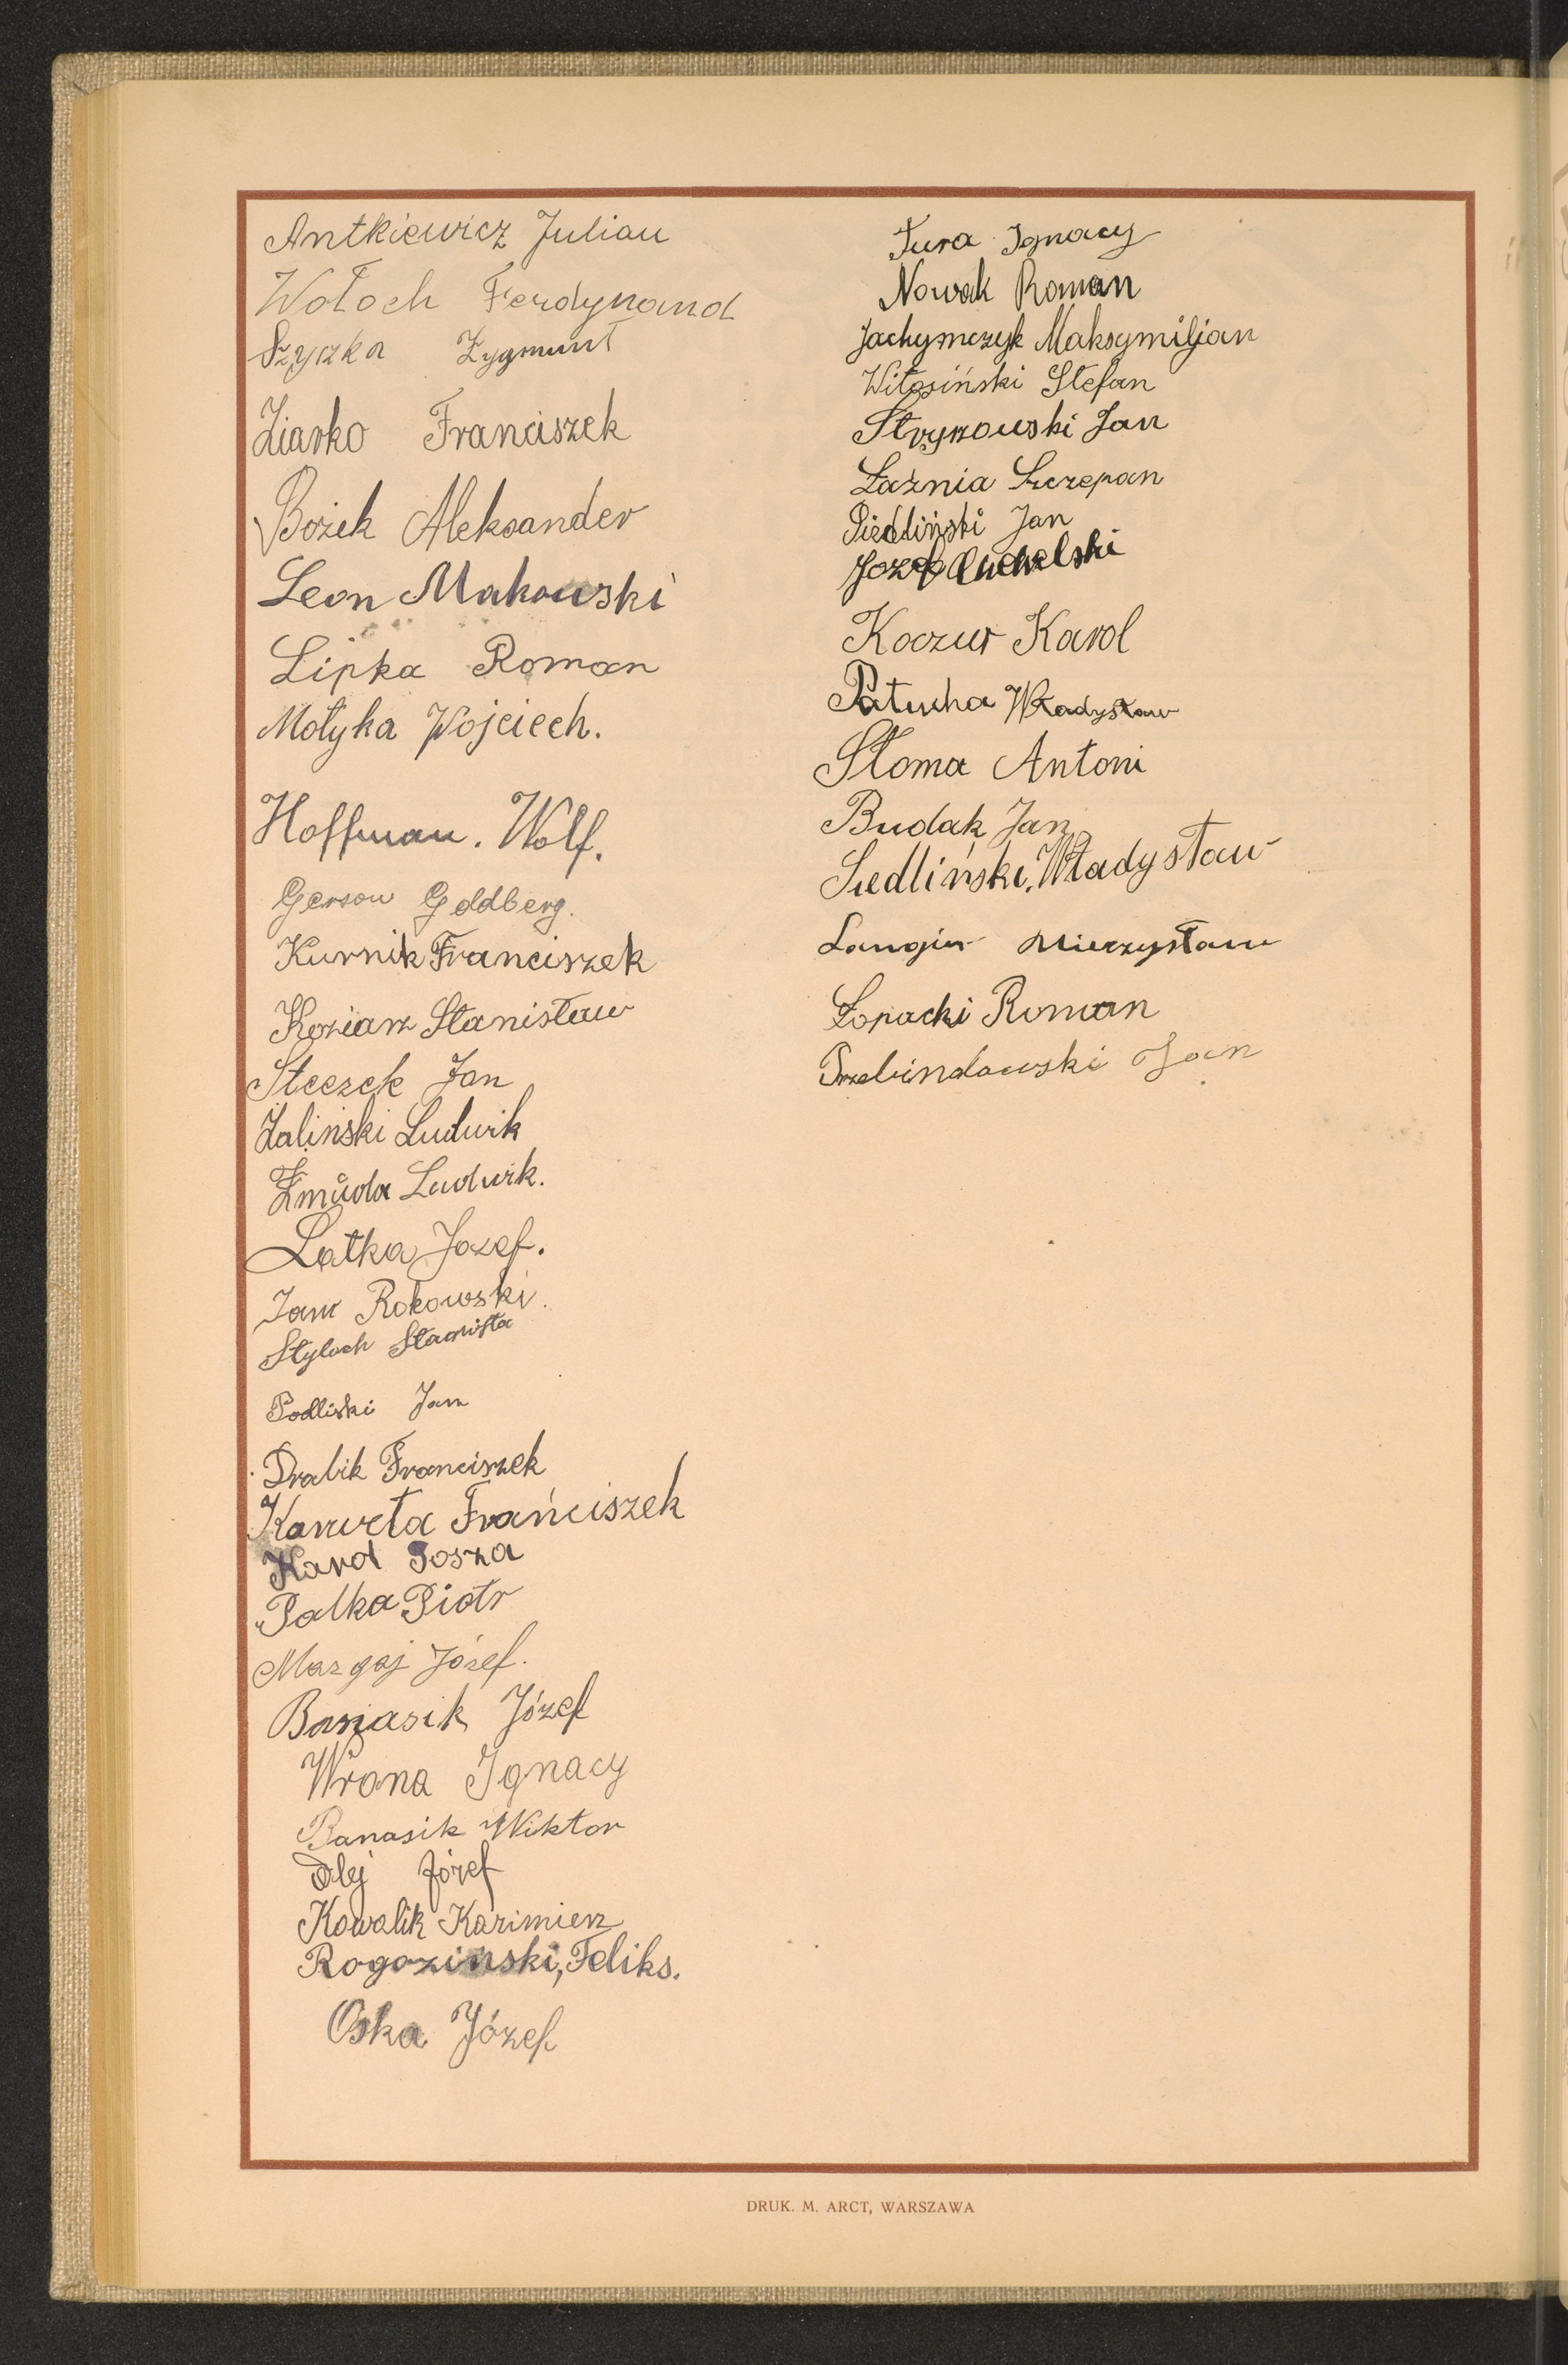 Antkiewicz Julian
Wołoch Ferdynand
Szyszka Zygmunt
Ziarko Franciszek
Bożek Aleksander
Leon Makowski
Lipka Roman
Motyka Wojciech.
Hoffman. Wolf.
Gerson Goldberg.
Kurnik Franciszek
Koziarz Stanisław
Steczek Jan
Zaliński Ludwik
Żmuda Ludwik.
Latka Jozef.
Jan Rokowski.
Styloch Stanisła
Podliski Jan
Drabik Franciszek
Karweta Frańciszek
Karol Posza
Palka Piotr
Mazgaj Józef.
Banasik Józef
Wrona Ignacy
Banasik Wiktor
Olej Józef
Kowalik Kazimierz
Rogoziński, Feliks.
Oska Józef
Tura Ignacy
Nowak Roman
Jachymczyk Maksymiljan
Witosiński Stefan
Stryzowski Jan
Łaźnia Szczepan
Siedliński Jan
Jozef
Koczur Karol
Patucha Władysław
Słoma Antoni
Budak Jan
Siedliński, Władysław
Langier Mieczysław
Łopacki Roman
Przebindowski Jan
DRUK. M. ARCT, WARSZAWA